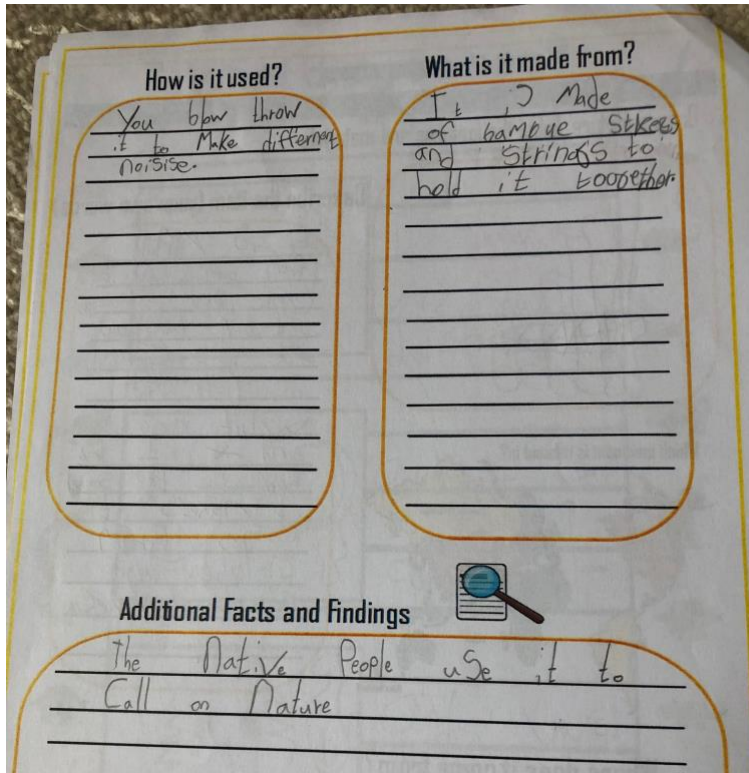 How is it used?
You blow throw
it to Make differnent
noisise.
What is it made from?
It is Made
of bamboe Stkees
and strings to
hold it toogether.
Additional Facts and Findings
The Native People uSe it to
Call on Nature